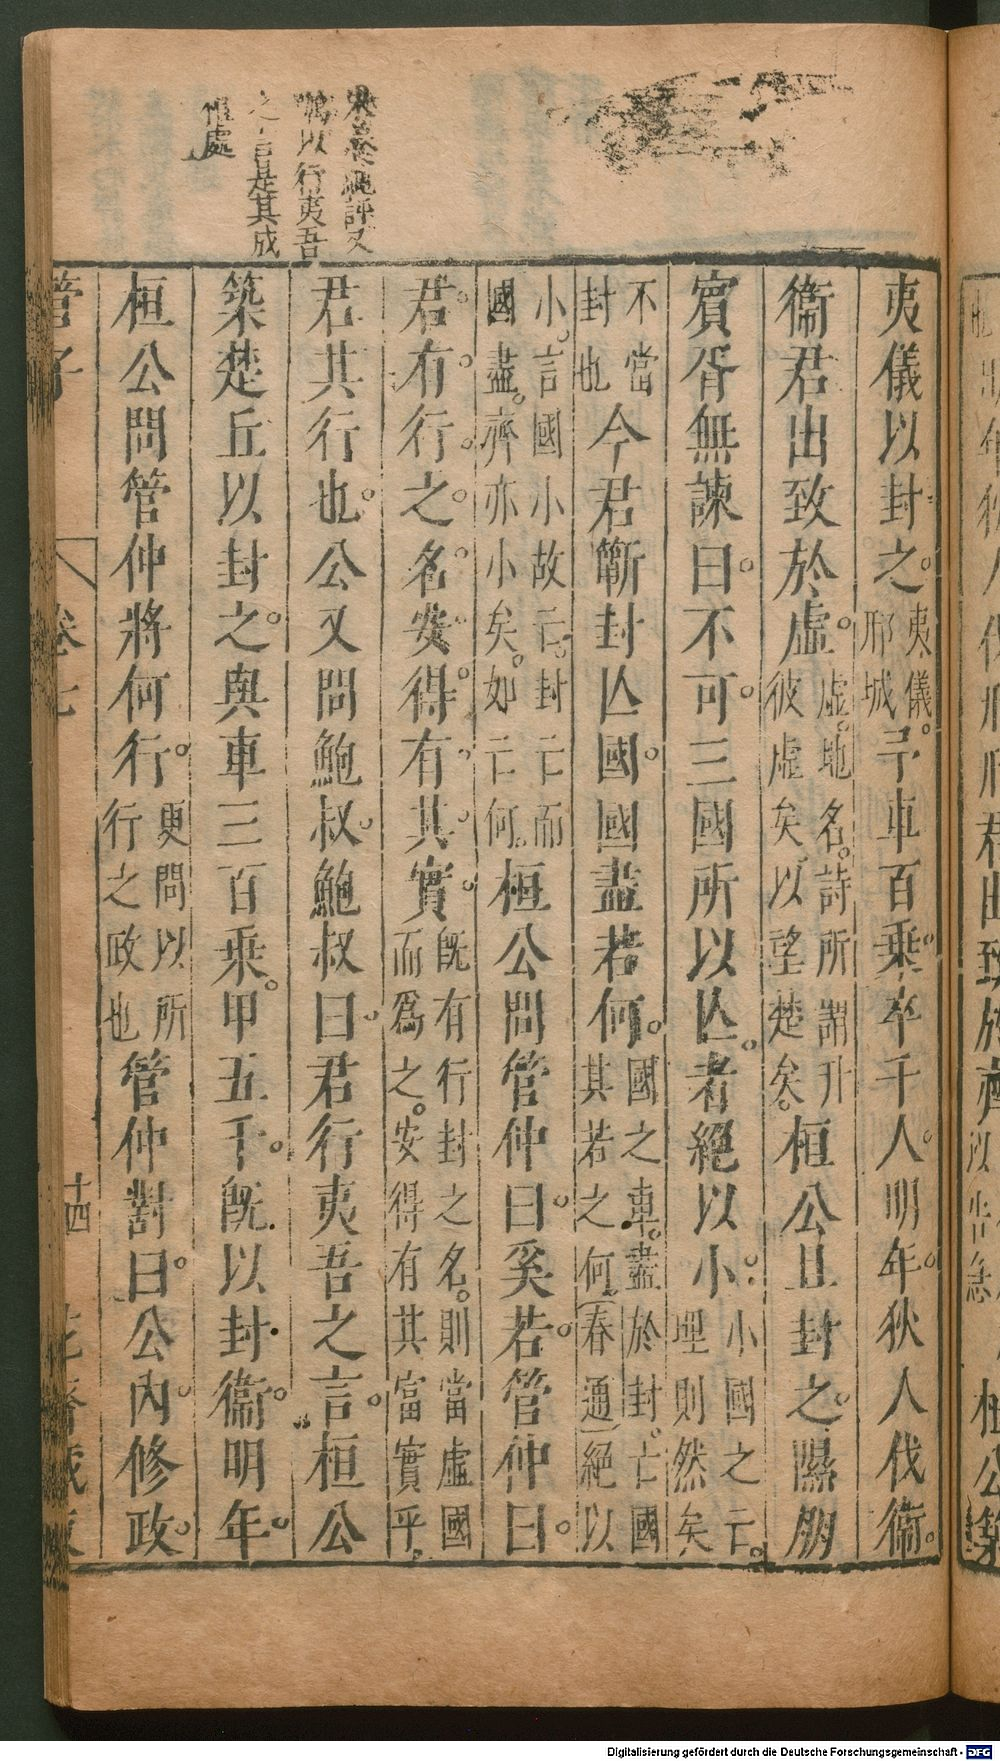 夷儀以封之。夷儀。邢城予車百乘。卒千人。明年。狄人伐衞。
衞君出致於虛。虛。地名。詩所謂升彼虛矣以望楚矣。桓公且封之。隰朋
賓胥無諫曰。不可。三國所以亾。者絕以小。小國之亡。理則然矣
不當封也今君蘄封亾國。國盡若何。國之車。盡於封。亡國其若之何(春通)絕以
小。言國小故云。封亡而國盡。齊亦小矣。如亡何。桓公問管仲曰。奚若。管仲曰。
君。有。行。之。名。安。得。有。其。實。旣有行封之名。則當虛國而爲之。安得有其富實乎。
君其行也。公又問鮑叔。鮑叔曰。君行夷吾之言。桓公
築楚丘以封之。與車三百乘。甲五千。旣以封衞。明年。
桓公問管仲將何行。更問以所行之政也管仲對曰。公內修政。
評又
以行夷吾
之言是其成
處
管子
卷七
十四
Digitalisierung gefördert durch die Deutsche Forschungsgemeinschaft - DFG